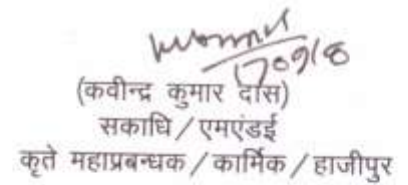 (कवीन्द्र कुमार दास)
सकाधि / एमएंडई
कृते महाप्रबन्धक / कार्मिक / हाजीपुर